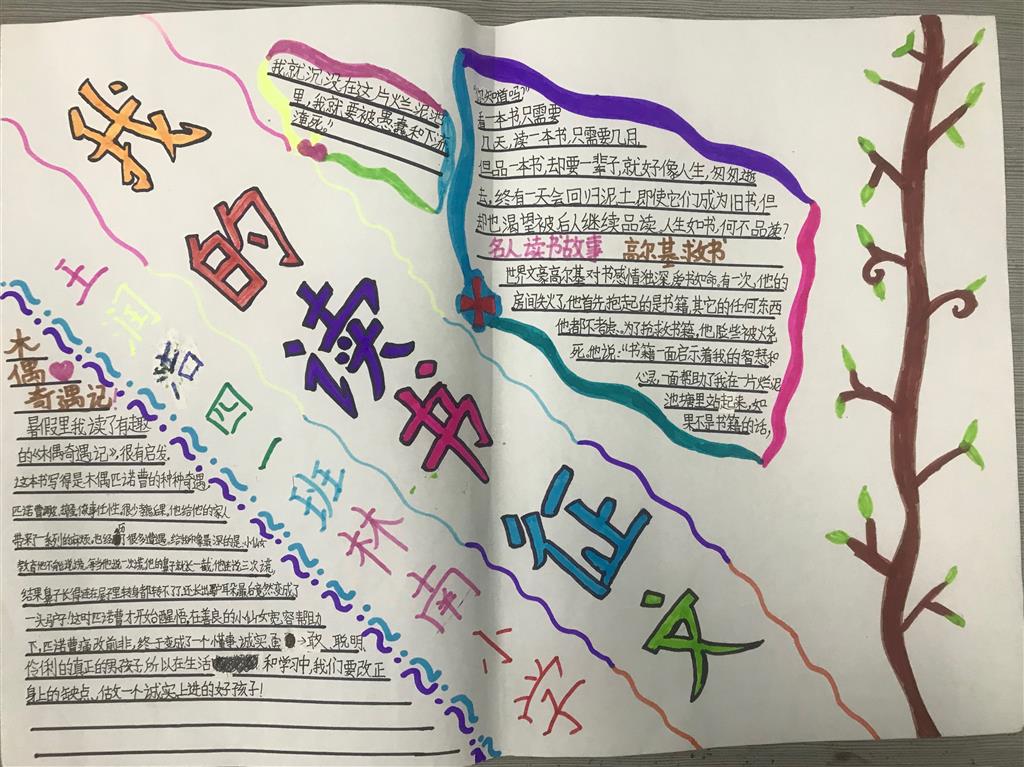 我的读书征文
王润浩四一班林南小学
"你知道吗?"
看一本书只需要
几天,读一本书,只需要几月,
但品一本书,却要一辈子,就好像人生,匆匆逝
去,终有一天会回归泥土,即使它们成为旧书,但
却也渴望被后人继续品读,人生如书,何不品读?
名人读书故事 高尔基救书
世界文豪高尔基对书感情独深,爱书如命,有一次,他的
房间失火了,他首先抱起的是书籍,其它的任何东西
他都不考虑。为了抢救书籍,他险些被火烧
死。他说:"书籍一面启示着我的智慧和
心灵,一面帮助了我在一片烂泥
池塘里站起来,如
果不是书籍的话,
我就沉没在这片烂泥池
里,我就要被愚蠢和下流
淹死。"
木
偶
奇遇记!
暑假里我读了有趣
的《木偶奇遇记》,很有启发,
这本书写得是木偶匹诺曹的种种奇遇
匹诺曹 做事任性,很少 后果,他给他的家人
带来了一系列的麻烦,也经历很多遭遇,给我印象最深的是,小仙女
教育他不能说谎,每当他说一次谎,他的鼻子就长一截,他连说三次谎,
结果鼻子长得连在屋子里转身都转不了,还长出驴耳朵最后竟然变成了
一头驴子!这时匹诺曹才开始醒悟,在善良的小仙女宽容帮助
下,匹诺曹痛改前非,终于变成了一个懂事、诚实、勇敢、聪明、
伶俐的真正的男孩子,所以在生活和学习中,我们要改正
身上的缺点,估放一个诚实上进的好孩子!